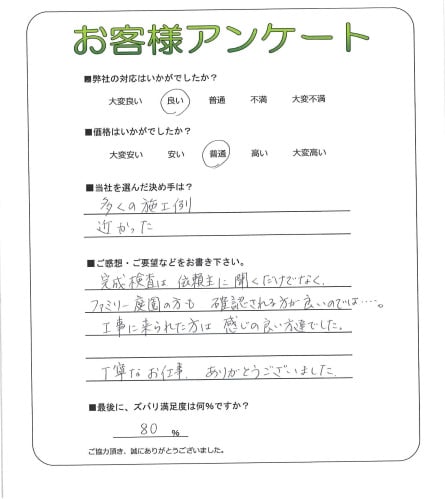 お客様アンケート
■弊社の対応はいかがでしたか？
大変良い 良い 普通 不満 大変不満
■価格はいかがでしたか？
大変安い 安い 普通 高い 大変高い
■当社を選んだ決め手は？
多くの施工例
近かった
■ご感想・ご要望などをお書き下さい。
完成検査は 依頼主に聞くだけでなく、
ファミリー庭園の方も 確認される方が良いのでは……。
工事に来られた方は 感じの良い方達でした。
丁寧なお仕事、ありがとうございました。
■最後に、ズバリ満足度は何％ですか？
80 ％
ご協力頂き、誠にありがとうございました。